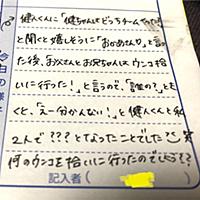 健人くんに「健ちゃんはどっちチームだった?」
と聞くと嬉しそうに「おかあさん!」と言っ
た後、お父さんとお兄ちゃんは、ウンコ拾
いに行った!」と言うので、「誰の?」とき
くと、「えー分かんない!」と健人くんと私
2人で???となったことでした 笑
何のウンコを拾いに行ったのでしょう??
記入者(